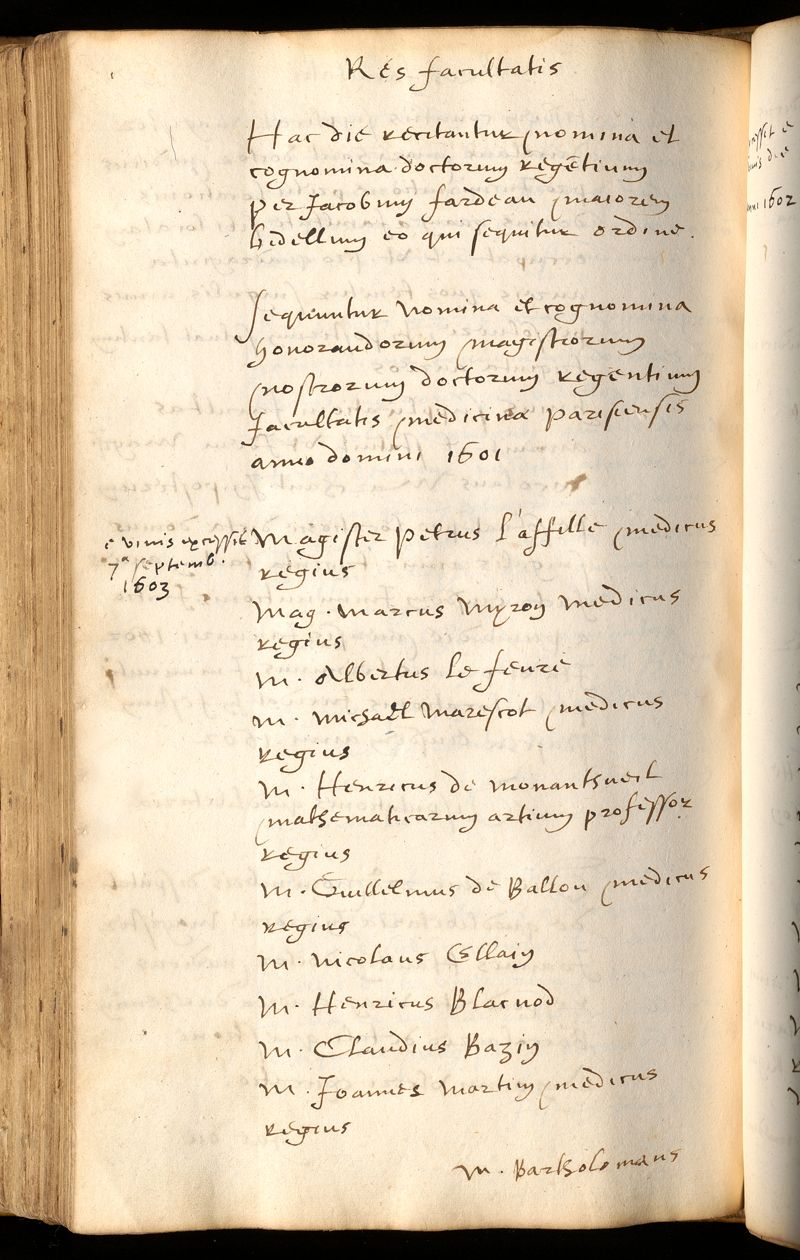 Res facultatis
Hac die recitantur nomina et
cognomina doctorum regētium
per Jacobum fardeau maiorem
bidellum eo qui sequitur ordine.
Sequuntur Nomina et cognomina
honorandorum magistrorum
nostrorum doctorum regentium
facultatis medicinæ parisiensis
anno domini 1601
e vivis excessit
7ª septemb.
1603
Magister petrus l'affille medicus
regius
Mag. Marcus Myron medicus
regius
M. Albertus le feure
M. Michael Marescot medicus
regius
M. Henricus de monantheuil
mathematicarum artium professor
regius
M. Guillelmus de Ballou medicus
regius
M. Nicolaus Ellain
M. Henricus Blacuod
M. Claudius Bazin
M. Joannes Martin medicus
regius
M. Bartholomæus
1602